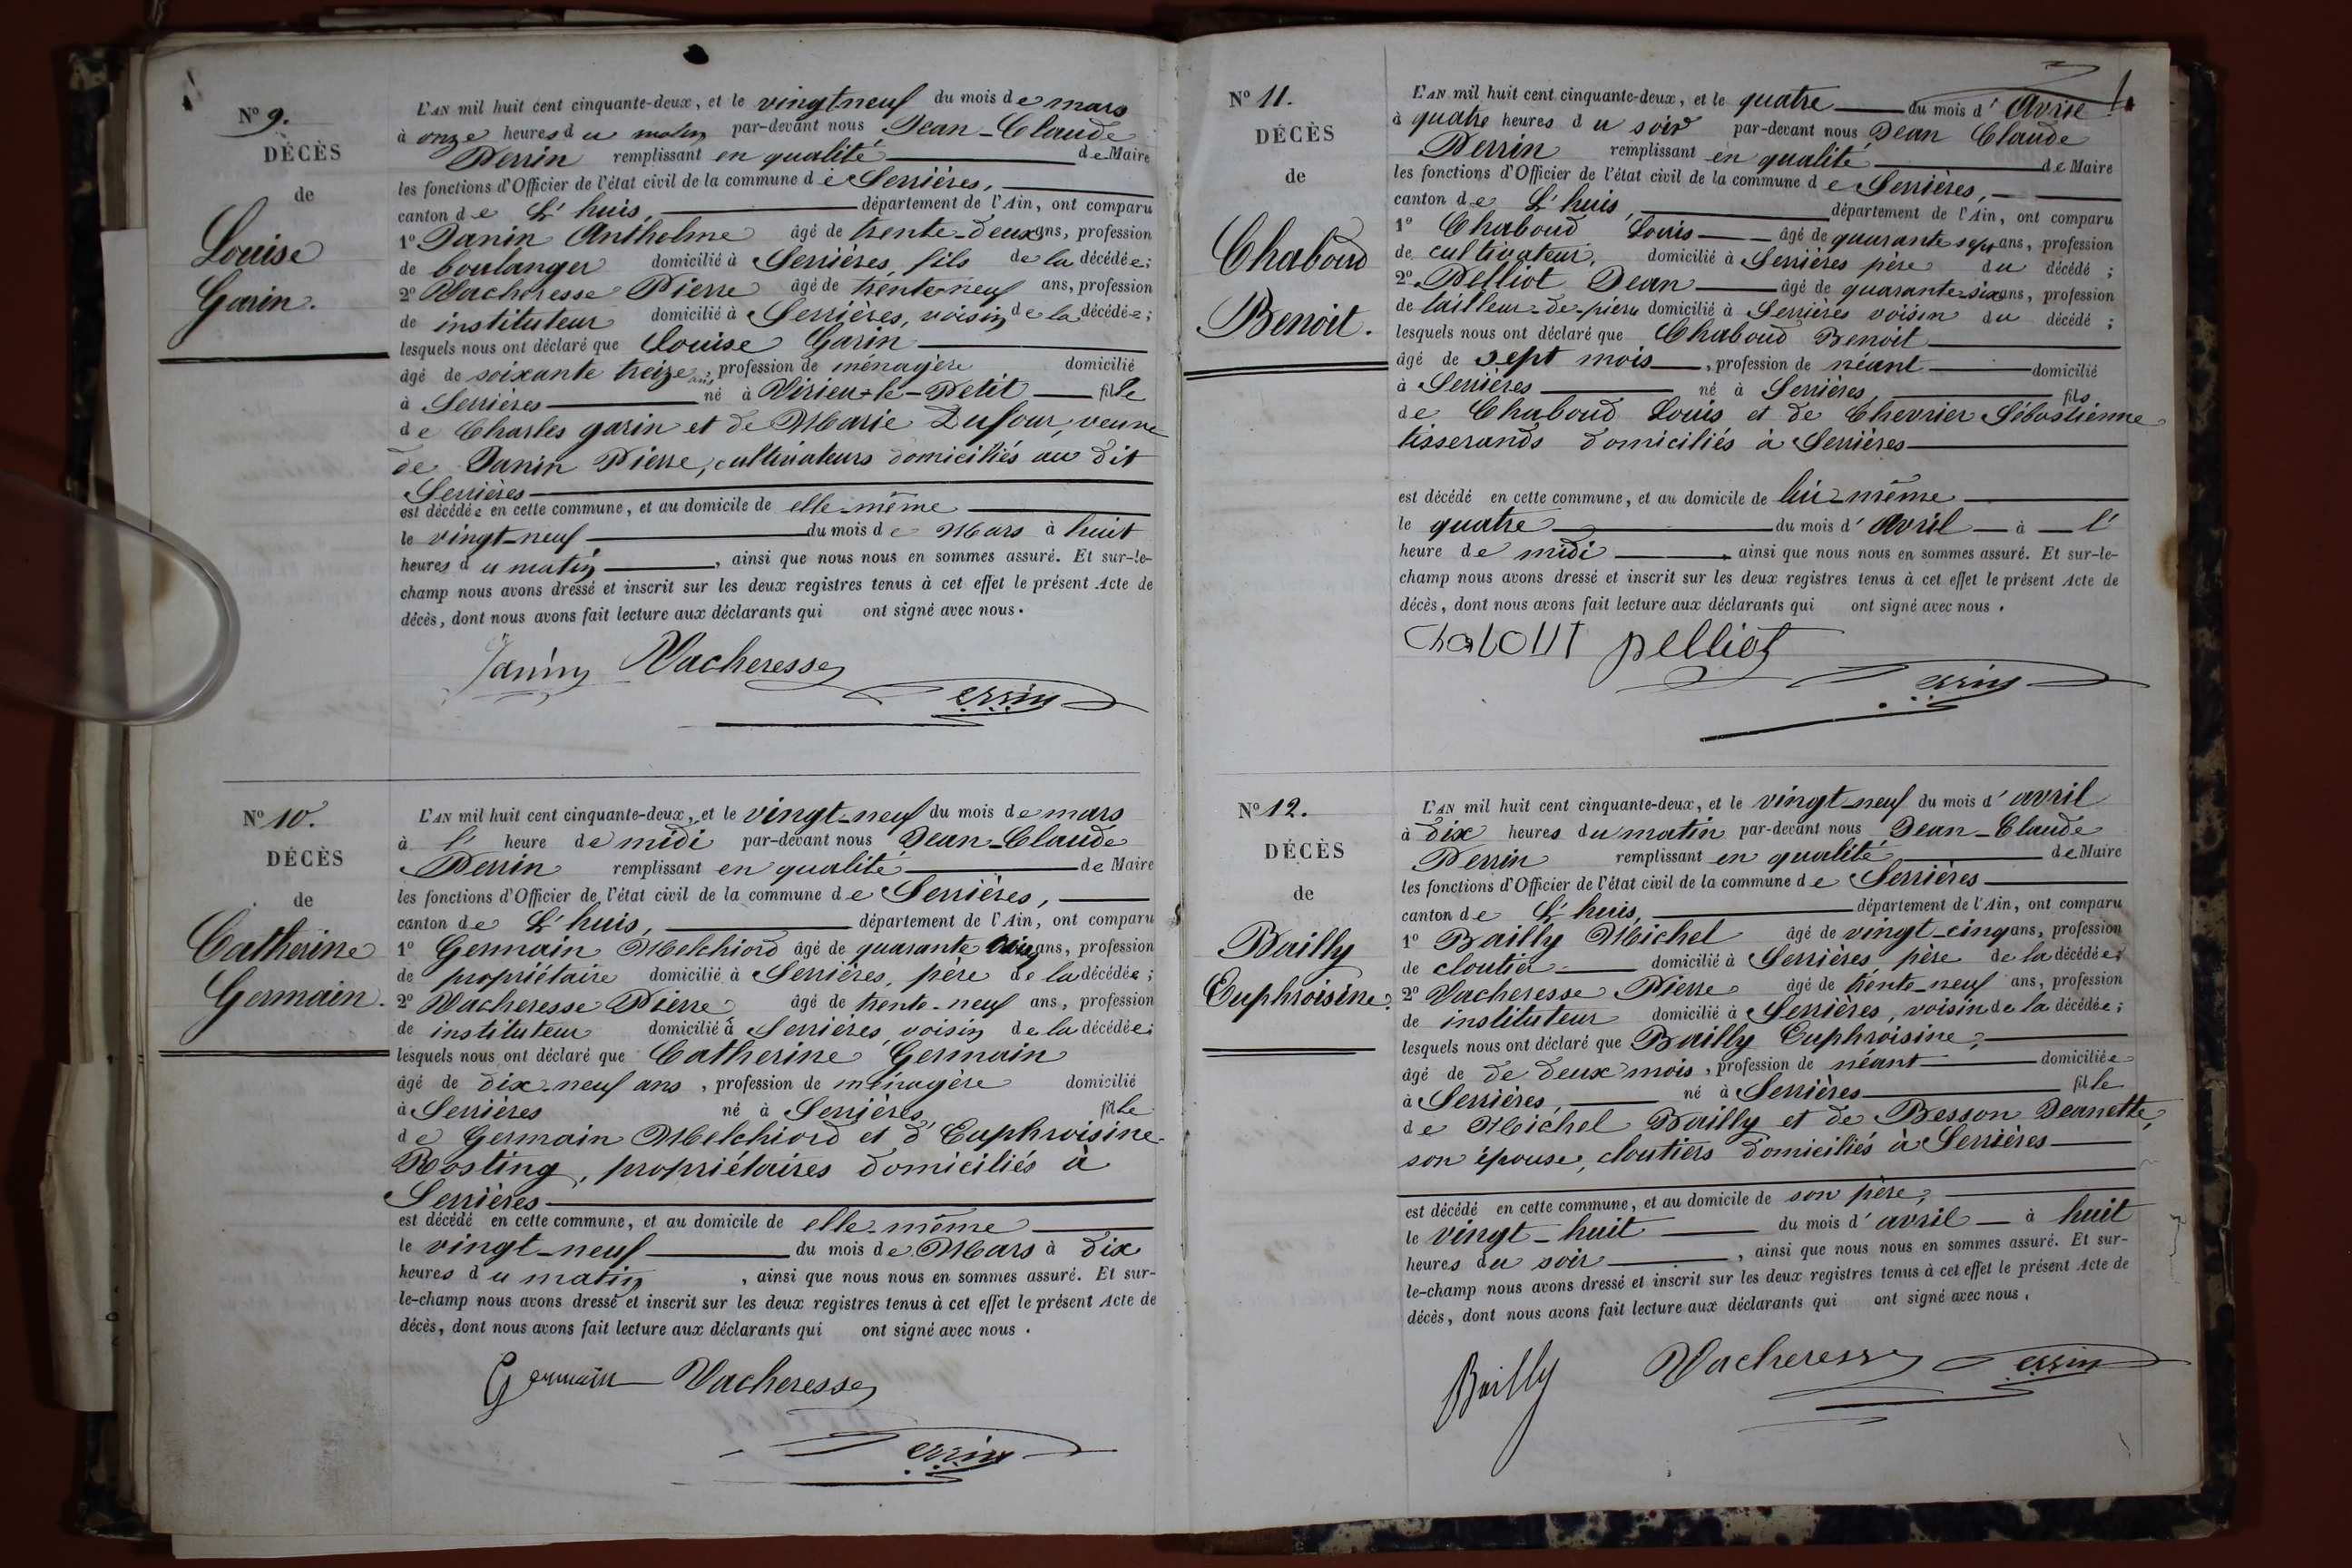 N° 9.
DÉCÈS
de
Louise
Garin.
L'AN mil huit cent cinquante-deux, et le vingt neuf du mois de mars
à onze heures du matin par-devant nous Jean-Claude
Perrin remplissant en qualité de Maire
les fonctions d'Officier de l'état civil de la commune de Serrières,
canton de L'huis, département de l'Ain, ont comparu
1° Janin Anthelme âgé de trente-deux ans, profession
de boulanger domicilié à Serrières, fils de la décédée;
2° Vacheresse Pierre âgé de trente-neuf ans, profession
de instituteur domicilié à Serrières, voisin de la décédée;
lesquels nous ont déclaré que Louise Garin
âgé de soixante treize ans, profession de ménagère domicilié
à Serrières né à Virieu-le-Petit fille
de Charles garin et de Marie Dufour, veuve
de Janin Pierre, cultivateurs domiciliés au dit
Serrières
est décédée en cette commune, et au domicile de elle-même
le vingt-neuf du mois de Mars à huit
heures du matin, ainsi que nous nous en sommes assuré. Et sur-le-
champ nous avons dressé et inscrit sur les deux registres tenus à cet effet le présent Acte de
décès, dont nous avons fait lecture aux déclarants qui ont signé avec nous.
Janin Vacheresse
Perrin
N° 10.
DÉCÈS
de
Catherine
Germain.
L'AN mil huit cent cinquante-deux, et le vingt-neuf du mois de mars
à l' heure de midi par-devant nous Jean-Claude
Perrin remplissant en qualité de Maire
les fonctions d'Officier de l'état civil de la commune de Serrières,
canton de L'huis, département de l'Ain, ont comparu
1° Germain Melchiord âgé de quarante cinq ans, profession
de propriétaire domicilié à Serrières, père de la décédée;
2° Vacheresse Pierre âgé de trente-neuf ans, profession
de instituteur domicilié à Serrières, voisin de la décédée;
lesquels nous ont déclaré que Catherine Germain
âgé de dix-neuf ans, profession de ménagère domicilié
à Serrières né à Serrières fille
de Germain Melchiord et d'Euphroisine
Rosting, propriétaires domiciliés à
Serrières
est décédé en cette commune, et au domicile de elle-même
le vingt-neuf du mois de Mars à dix
heures du matin, ainsi que nous nous en sommes assuré. Et sur-
le-champ nous avons dressé et inscrit sur les deux registres tenus à cet effet le présent Acte de
décès, dont nous avons fait lecture aux déclarants qui ont signé avec nous.
Germain Vacheresse
Perrin
N° 11.
DÉCÈS
de
Chaboud
Benoit.
L'AN mil huit cent cinquante-deux, et le quatre du mois d'Avril
à quatre heures du soir par-devant nous Jean Claude
Perrin remplissant en qualité de Maire
les fonctions d'Officier de l'état civil de la commune de Serrières,
canton de L'huis, département de l'Ain, ont comparu
1° Chaboud Louis âgé de quarante sept ans, profession
de cultivateur, domicilié à Serrières père du décédé;
2° Pelliot Jean âgé de quarante-six ans, profession
de tailleur-de-pierre domicilié à Serrières voisin du décédé;
lesquels nous ont déclaré que Chaboud Benoit
âgé de sept mois, profession de néant domicilié
à Serrières né à Serrières, fils
de Chaboud Louis et de Chevrier Sébastienne
tisserands domiciliés à Serrières
est décédé en cette commune, et au domicile de lui-même
le quatre du mois d'Avril à l'
heure de midi, ainsi que nous nous en sommes assuré. Et sur-le-
champ nous avons dressé et inscrit sur les deux registres tenus à cet effet le présent Acte de
décès, dont nous avons fait lecture aux déclarants qui ont signé avec nous.
pelliot
Perrin
N° 12.
DÉCÈS
de
Bailly
Euphroisine.
L'AN mil huit cent cinquante-deux, et le vingt-neuf du mois d'avril
à dix heures du matin par-devant nous Jean-Claude
Perrin remplissant en qualité de Maire
les fonctions d'Officier de l'état civil de la commune de Serrières
canton de L'huis, département de l'Ain, ont comparu
1° Bailly Michel âgé de vingt-cinq ans, profession
de cloutier domicilié à Serrières, père de la décédée;
2° Vacheresse Pierre âgé de trente-neuf ans, profession
de instituteur domicilié à Serrières, voisin de la décédée;
lesquels nous ont déclaré que Bailly Euphroisine,
âgé de de deux mois, profession de néant domiciliée
à Serrières, né à Serrières fille
de Michel Bailly et de Besson Jeanette,
son épouse, cloutiers domiciliés à Serrières
est décédé en cette commune, et au domicile de son père,
le vingt-huit du mois d'avril à huit
heures du soir, ainsi que nous nous en sommes assuré. Et sur-
le-champ nous avons dressé et inscrit sur les deux registres tenus à cet effet le présent Acte de
décès, dont nous avons fait lecture aux déclarants qui ont signé avec nous.
Bailly Vacheresse Perrin